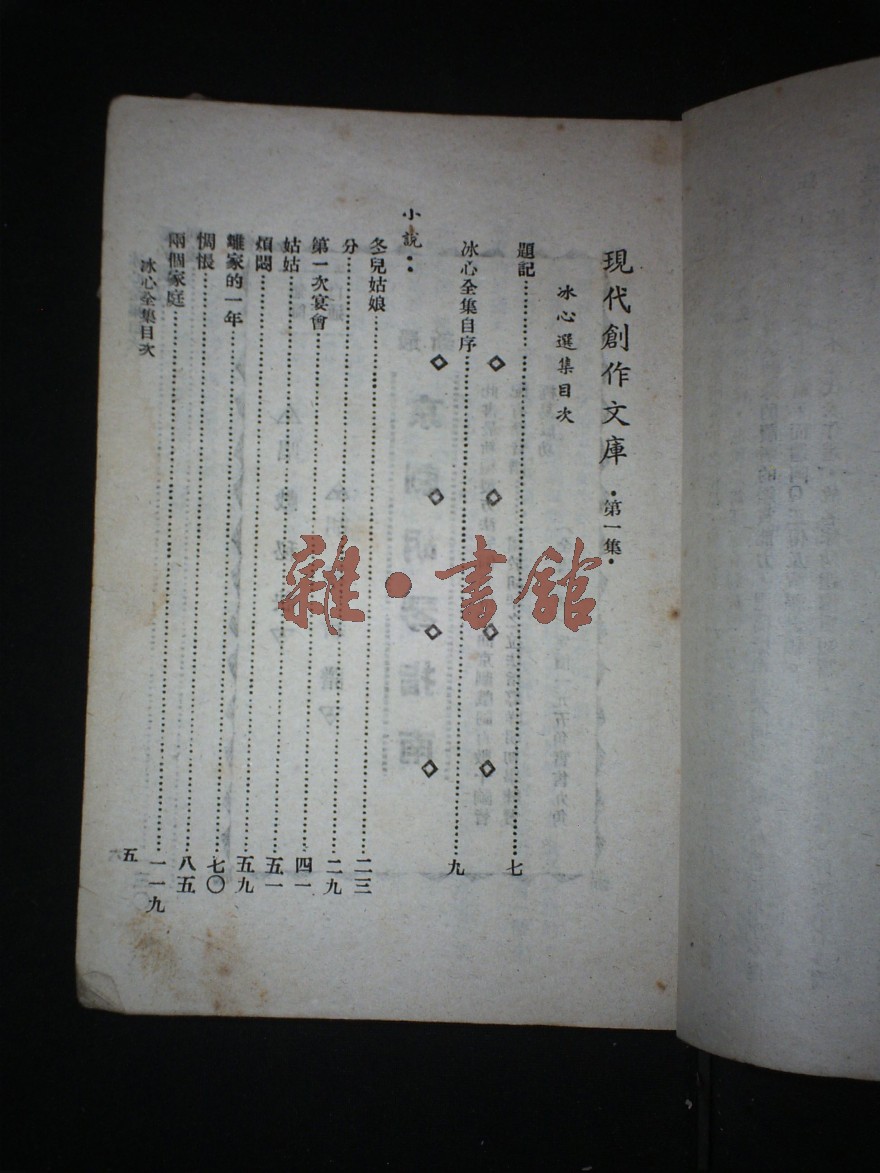 現代創作文庫・第一集・
冰心選集目次
題記……七
冰心全集自序……九
◇◇◇◇
◇◇◇◇
小說：
冬兒姑娘……二三
分……二九
第一次宴會……四一
姑姑……五一
煩悶……五九
離家的一年……七〇
惆悵……八五
兩個家庭……一一九
冰心全集目次
五
雜・書館